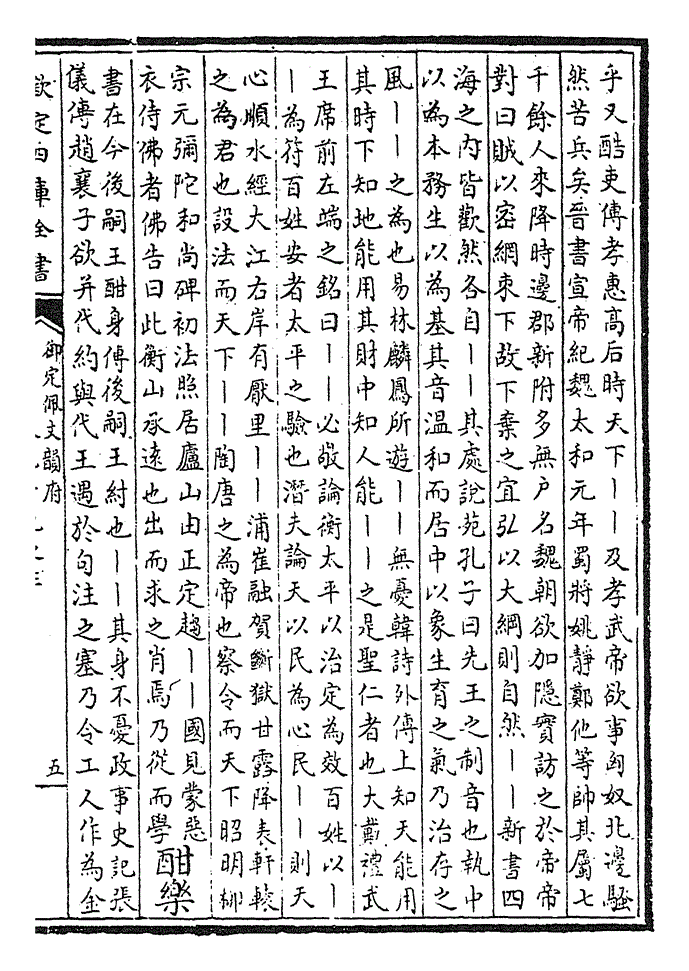 乎又酷吏傳孝惠高后時天下丨丨及孝武帝欲事匈奴北邊騷
然苦兵矣晉書宣帝紀魏太和元年蜀將姚靜鄭他等帥其屬七
千餘人來降時邊郡新附多無户名魏朝欲加隱實訪之於帝帝
對曰賊以密網束下故下棄之宜弘以大綱則自然丨丨新書四
海之内皆歡然各自丨丨其處說苑孔子曰先王之制音也執中
以為本務生以為基其音温和而居中以象生育之氣乃治存之
風丨丨之為也易林麟鳳所遊丨丨無憂韓詩外傳上知天能用
其時下知地能用其財中知人能丨丨之是聖仁者也大戴禮武
王席前左端之銘曰丨丨必敬論衡太平以治定為效百姓以丨
丨為符百姓安者太平之驗也潛夫論天以民為心民丨丨則天
心順水經大江右岸有厭里丨丨浦崔融賀斷獄甘露降表軒轅
之為君也設法而天下丨丨陶唐之為帝也察令而天下昭明柳
宗元彌陀和尚碑初法照居廬山由正定趨丨丨國見蒙惡
衣侍佛者佛告曰此衡山承遠也出而求之肖焉乃從而學
酣樂
書在今後嗣王酣身傳後嗣王紂也丨丨其身不憂政事史記張
儀傳趙襄子欲并代約與代王遇於句注之塞乃令工人作為金
欽定四庫全書
御定佩文韻府
五